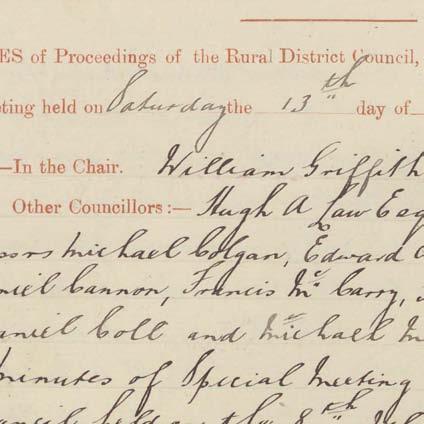 ES of Proceedings of the Rural District Council,
eting held on Saturday the 13th day of
—In the Chair. William Griffith
Other Councillors:— Hugh A Law Esq
ssrs Michael Colgan, Edward
niel Cannon, Francis Mc Carry,
aniel Coll and Michael M
minutes of Special Meeting
ouncil held on the 8th